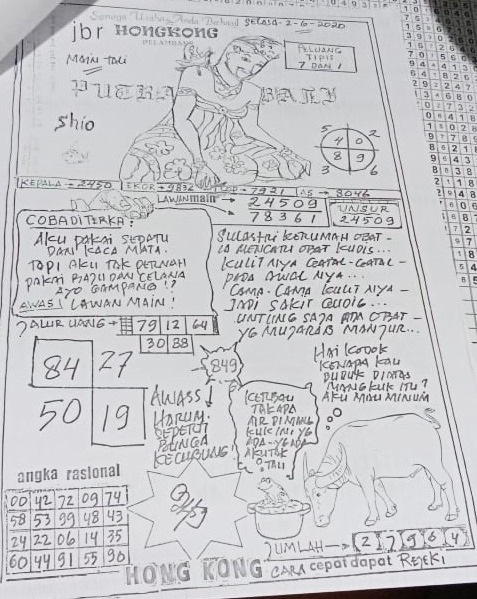 Semoga Usaha Anda Berhasil selasa - 2 - 6 - 2020
jbr HONGKONG
PELAMBANG
MAIN TALI
PELUANG
TIPIS
7 DAN 1
PUTRA BALI
Shio
5 4 0 2
3 8 9 6
KEPALA → 2450 EKOR → 9832 COP → 7921 AS → 8046
LAWAN main → 24509
78361
UNSUR
24509
COBA DITERKA :
AKU PAKAI SEPATU
DAN KACA MATA.
TAPI AKU TAK PERNAH
PAKAI BAJU DAN CELANA
AYO GAMPANG !?
AWAS ! LAWAN MAIN !
SULASTRI KERUMAH OBAT -
IA MENCARI OBAT KUDIS...
KULIT NYA GATAL - GATAL -
PADA AWAL NYA ...
LAMA - LAMA KULIT NYA -
JADI SAKIT CUDIG ...
UNTUNG SAJA ADA OBAT -
YG MUJARAB MANJUR ...
JALUR UANG → 79 12 64
30 88
84 27
50 19
849
AWASS !
HARUM
SEPERTI
BUNGA
KECUBUNG
HAI KODOK
KENAPA KAU
DUDUK DIATAS
MANGKUK ITU ?
AKU MAU MINUM
KERBAU
TAK APA
AIR DIMANG
KUK INI YG
ADA - YG ADA
AKU TAK
TAU
angka rasional
00 42 72 09 74
58 53 99 48 43
24 22 06 14 35
60 44 91 55 90
JUMLAH → 2 7 9 6 4
HONG KONG CARA cepat dapat REJEKI